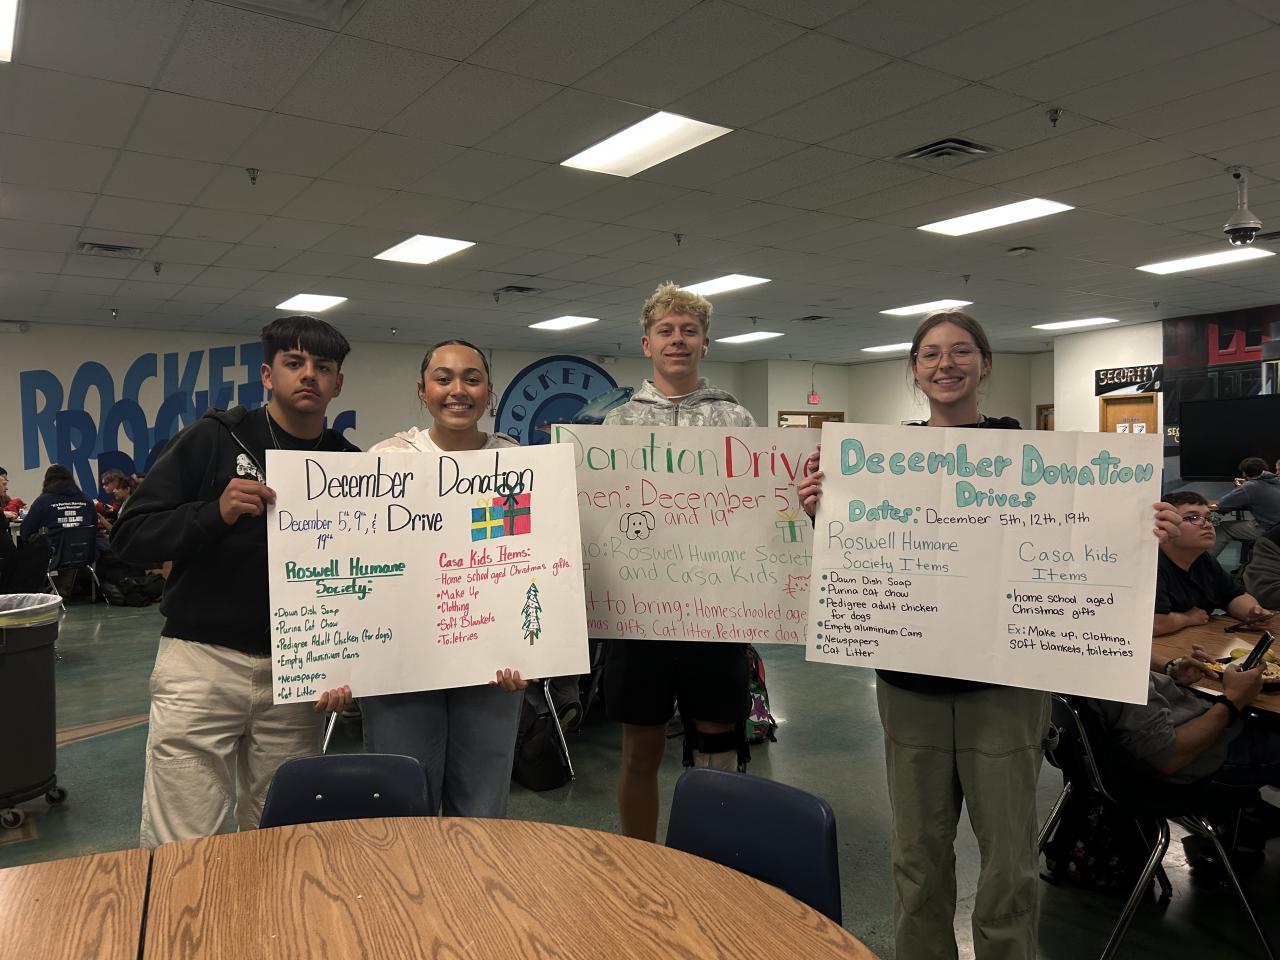 ROCKET
ROCKET
SECURITY
December Donation
December 5th, 9th, &
19th
Drive
Roswell Humane
Society:
•Dawn Dish Soap
•Purina Cat Chow
•Pedigree Adult Chicken (for dogs)
•Empty Aluminium Cans
•Newspapers
•Cat Litter
Casa Kids Items:
-Home school aged Christmas gifts.
•Make Up
•Clothing
•Soft Blankets
•Toiletries
Donation Drive
When: December 5
and 19th
Who: Roswell Humane Society
and Casa Kids
to bring: Homeschooled age
gifts, Cat litter, Pedrigree dog
December Donation
Drives
Dates: December 5th, 12th, 19th
Roswell Humane
Society Items
•Dawn Dish Soap
•Purina cat chow
•Pedigree adult chicken
for dogs
•Empty aluminium Cans
•Newspapers
•Cat Litter
Casa kids
Items
•home school aged
Christmas gifts
Ex: Make up, clothing,
soft blankets, toiletries